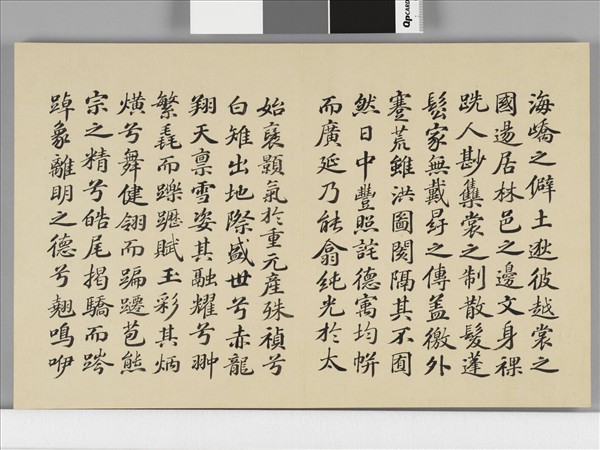 海嶠之僻土逖彼越裳之
國居林邑之邊文身裸
跣人尠集裳之制散髮蓬
鬆家無戴冔之傳蓋徼外
荒雖洪圖閡隔其不囿
然日中豐照詫德寓均帡
而廣延乃能翕純光於太
始裒顥氣於重元產殊禎兮
白雉出地際盛世兮赤龍
翔天稟雪姿其融耀兮翀
繁毳而躒躧賦玉彩其炳
熿兮舞健翎而蹁躚苞熊
宗之精兮皓尾揭驕而
踔象離明之德兮翹鳴咿
QPCARD